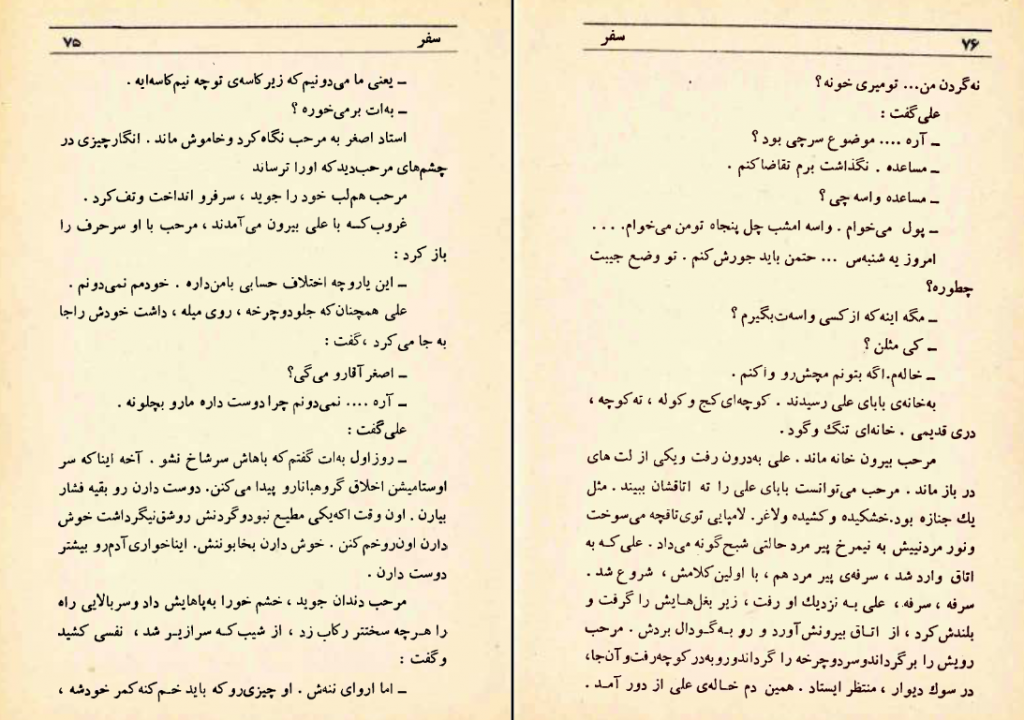 سفر ۷۵
ـ یعنی ما می‌دونیم‌که زیر کاسه‌ی تو چه نیم‌کاسه‌ایه .
ـ به‌ات برمی‌خوره ؟
استاد اصغر به مرحب نگاه کرد وخاموش ماند . انگار چیزی در
چشم‌های مرحب‌دید که اورا ترساند
مرحب هم‌لب خود را جوید ، سرفرو انداخت وتف‌کرد .
غروب‌کـه با علی بیرون می‌آمدند ، مرحب با او سر حرف را
باز کرد :
ـ این یارو چه اختلاف حسابی بامن‌داره . خودمم نمی‌دونم .
علی همچنان‌که جلو دوچرخه ، روی میله ، داشت خودش راجا
به جا می‌کرد ، گفت :
ـ اصغر آقارو می‌گی؟
ـ آره .... نمی‌دونم چرا دوست داره مارو بچلونه .
علی‌گفت :
ـ روز اول به‌ات گفتم‌که باهاش سرشاخ نشو . آخه ایناکه سر
اوستامیشن اخلاق گروهبانارو پیدا می‌کنن. دوست دارن رو بقیه فشار
بیارن . اون وقت اگه‌یکی مطیع نبودوگردنش روشق‌نیگرداشت خوش
دارن اون‌روخم‌کنن . خوش دارن بخابوننش. ایناخواری‌آدم‌رو بیشتر
دوست دارن .
مرحب دندان جوید ، خشم خورا به‌پاهایش داد وسربالایی راه
را هرچه سختتر رکاب زد ، از شیب‌کـه سرازیـر شد ، نفسی کشید
وگفت :
ـ اما اروای ننه‌ش . او چیزی‌روکه باید خـم‌کنه‌کمر خودشه ،
سفر ۷۶
نه‌گردن من... تومیری خونه؟
علی‌گفت :
ـ آره .... موضوع سرچی بود ؟
ـ مساعده . نگذاشت برم تقاضاکنم .
ـ مساعده واسه چی ؟
ـ پول می‌خوام . واسه امشب چل پنجاه تومن می‌خوام. . . .
امروز یه شنبه‌س ... حتمن باید جورش‌کنم . تو وضع جیبت
چطوره؟
ـ مگه اینه‌که از کسی واسه‌ت‌بگیرم ؟
ـ کی مثلن ؟
ـ خاله‌م.اگه بتونم مچش‌رو واکنم .
به‌خانه‌ی بابای علی رسیدند . کوچه‌ای‌کج و کوله ، ته‌کوچه ،
دری قدیمی . خانه‌ای تنگ وگود .
مرحب بیرون خانه ماند . علی به‌درون رفت ویکی از لت های
در باز ماند . مرحب می‌توانست بابای علی را ته اتاقشان ببیند . مثل
یك جنازه بود.خشکیده و کشیده ولاغر. لامپایی توی‌تاقچه می‌سوخت
ونور مردنییش به نیمرخ پیر مرد حالتی شبح‌گونه می‌داد . علی‌کـه به
اتاق وارد شد ، سرفه‌ی پیر مرد هم ، با اولین‌کلامش ، شروع شد .
سرفه ، سرفه ، علی بـه نزدیك او رفت ، زیر بغل‌هـایش را گرفت و
بلندش‌کرد ، از اتـاق بیرونش‌آورد و رو بـه‌گـودال بردش . مرحب
رویش را برگرداندوسردوچرخه را گرداندوروبه‌درکوچه‌رفت‌وآن‌جا،
در سوك دیوار ، منتظر ایستاد . همین دم خـاله‌ی علی از دور آمـد .